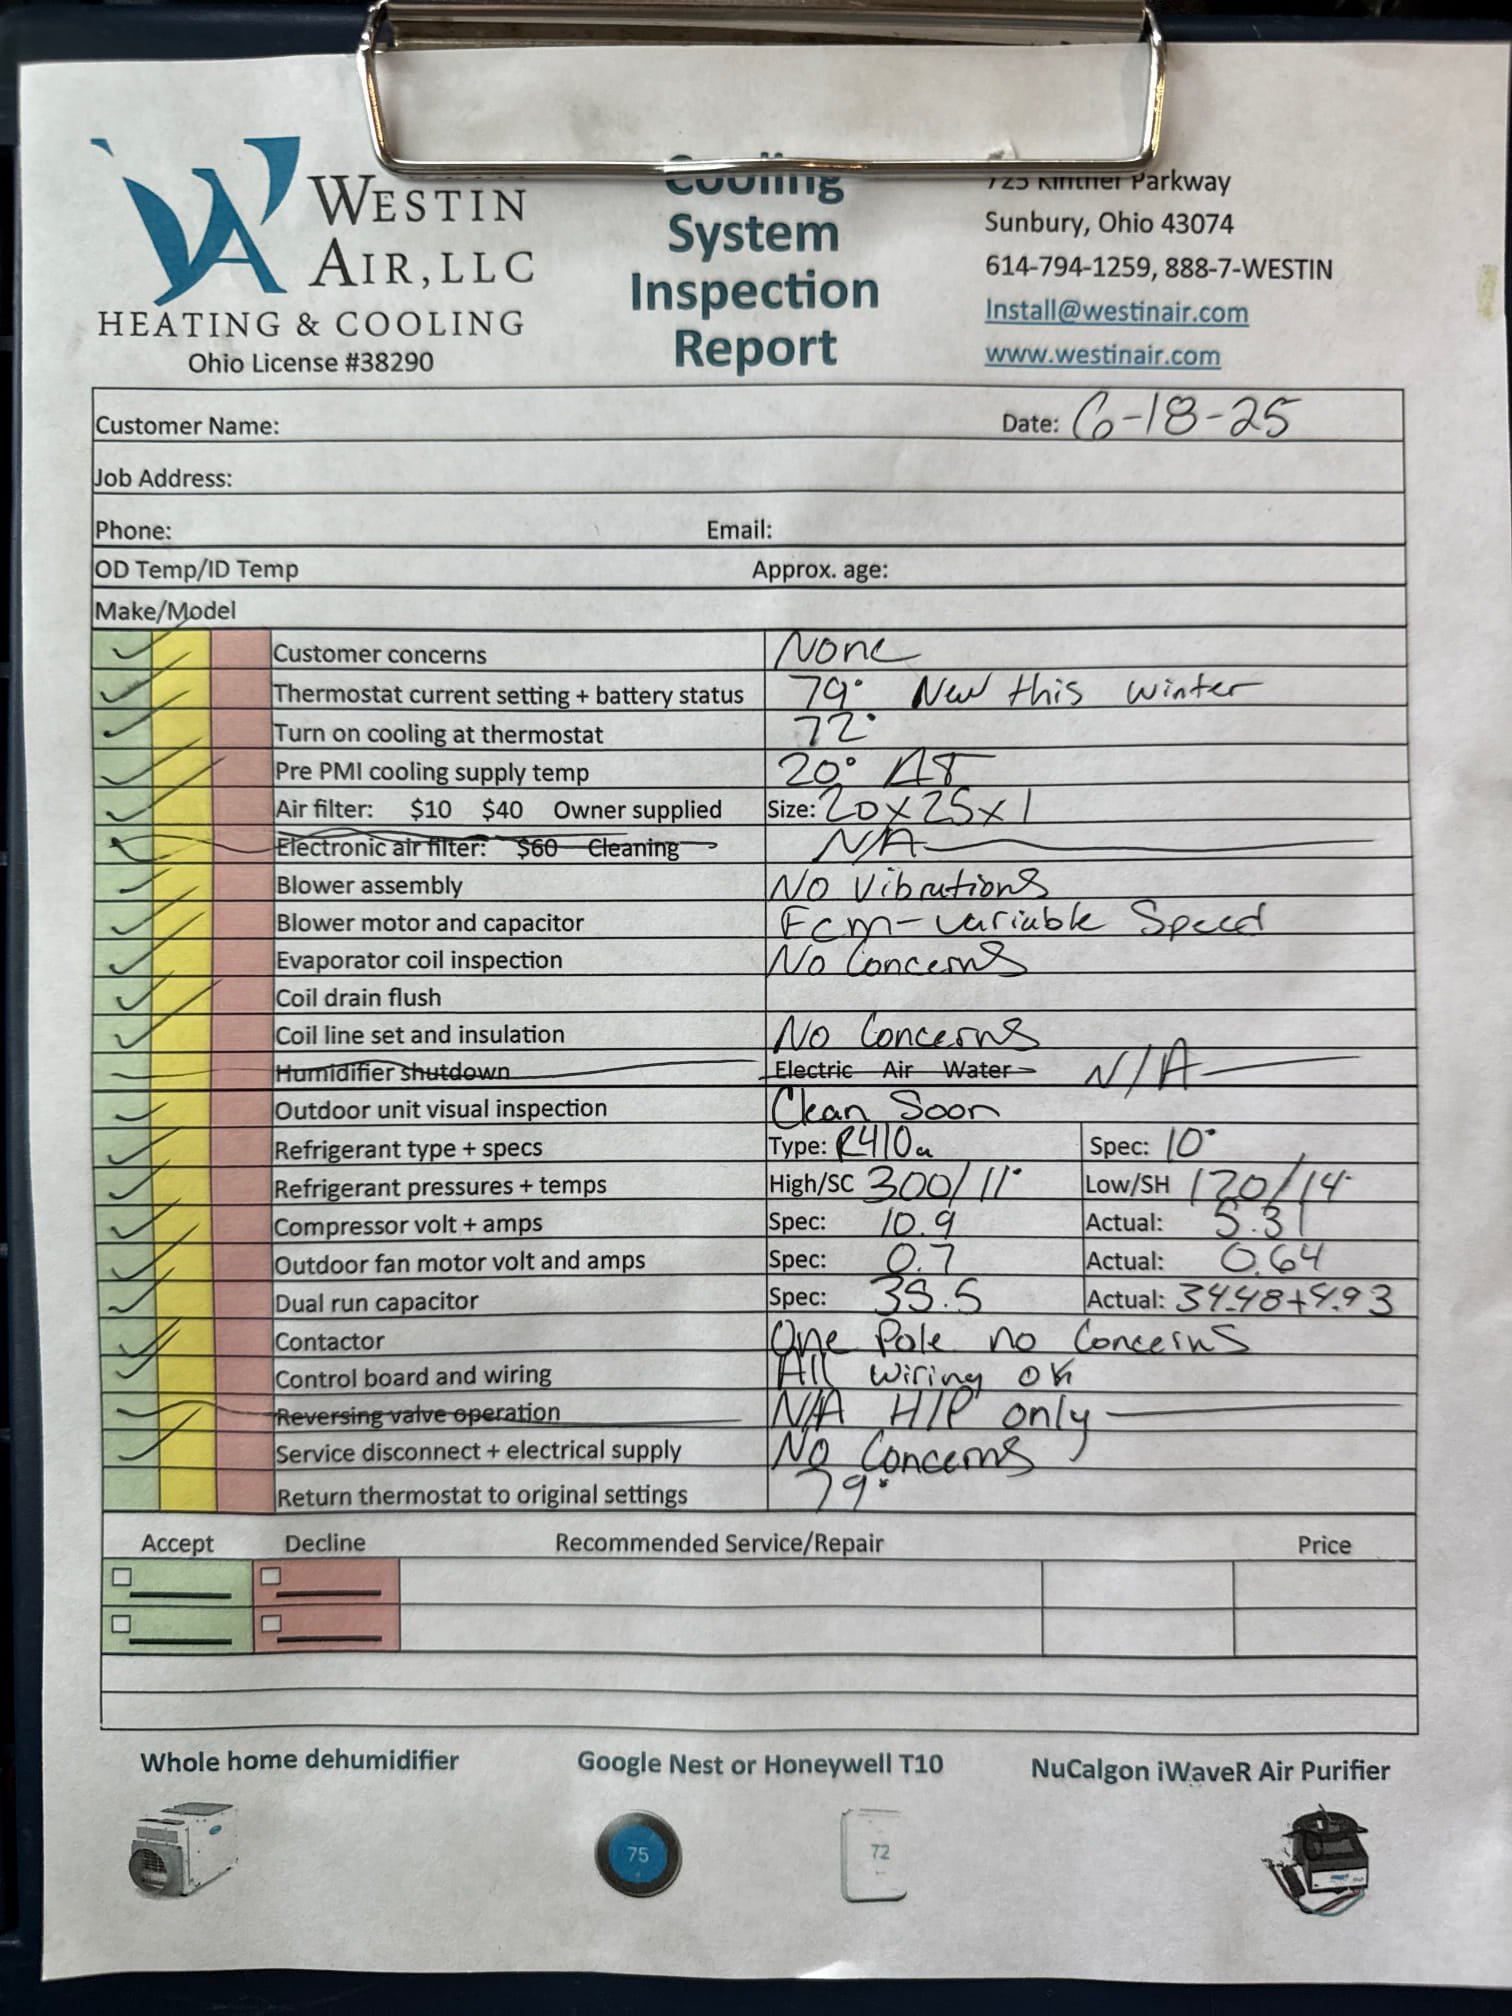 WESTIN
AIR, LLC
HEATING & COOLING
Ohio License #38290
Cooling
System
Inspection
Report
725 Kintner Parkway
Sunbury, Ohio 43074
614-794-1259, 888-7-WESTIN
Install@westinair.com
www.westinair.com
Customer Name: Date: 6-18-25
Job Address:
Phone: Email:
OD Temp/ID Temp Approx. age:
Make/Model
Customer concerns None
Thermostat current setting + battery status 79° New this winter
Turn on cooling at thermostat 72°
Pre PMI cooling supply temp 20° ΔT
Air filter: $10 $40 Owner supplied Size: 20x25x1
Electronic air filter: $60 Cleaning N/A
Blower assembly No Vibrations
Blower motor and capacitor Ecm-variable Speed
Evaporator coil inspection No Concerns
Coil drain flush
Coil line set and insulation No Concerns
Humidifier shutdown Electric Air Water N/A
Outdoor unit visual inspection Clean Soon
Refrigerant type + specs Type: R410a Spec: 10°
Refrigerant pressures + temps High/SC 300/11° Low/SH 120/14°
Compressor volt + amps Spec: 10.9 Actual: 5.31
Outdoor fan motor volt and amps Spec: 0.7 Actual: 0.64
Dual run capacitor Spec: 35.5 Actual: 34.48+4.93
Contactor One Pole no Concerns
Control board and wiring All wiring ok
Reversing valve operation N/A H/P only
Service disconnect + electrical supply No Concerns
Return thermostat to original settings 79°
Accept Decline Recommended Service/Repair Price
Whole home dehumidifier Google Nest or Honeywell T10 NuCalgon iWaveR Air Purifier
75
72